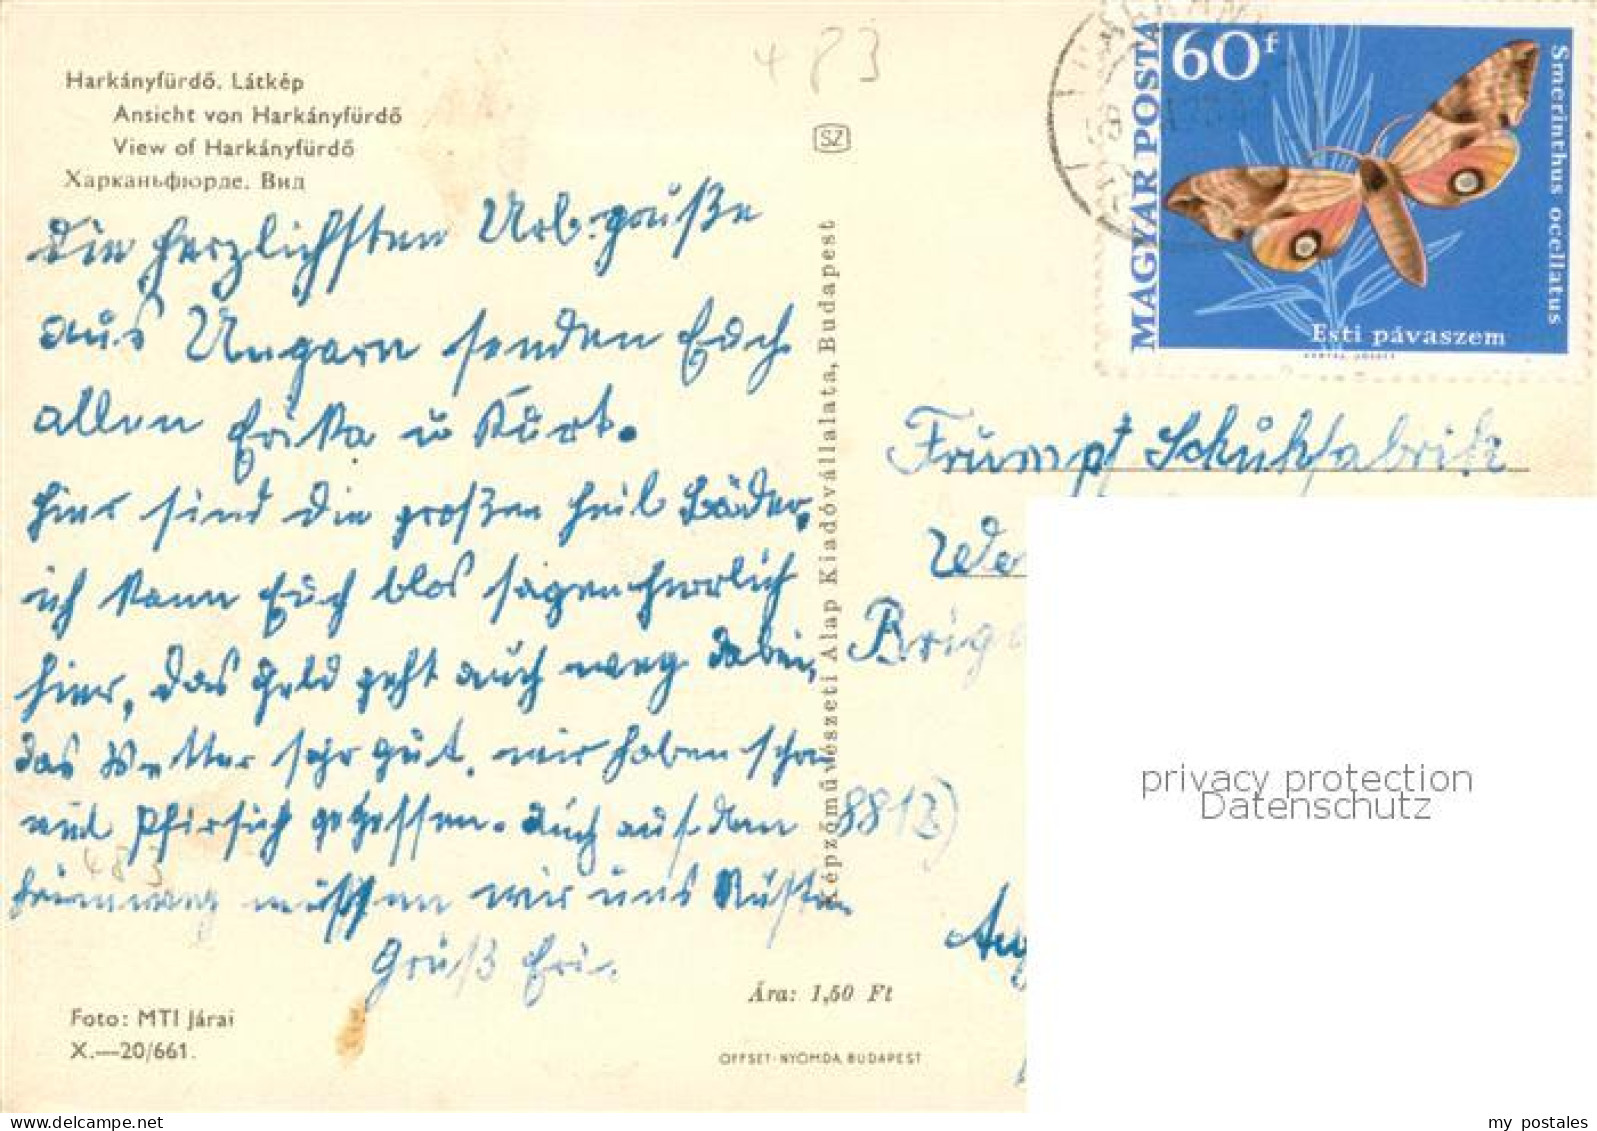 Harkányfürdő. Látkép
Ansicht von Harkányfürdő
View of Harkányfürdő
Харканьфюрде. Вид
483
SZ
MAGYAR POSTA
60f
Smerinthus ocellatus
Esti pávaszem
Die herzlichsten Urb. grüße
aus Ungarn senden Euch
allen Erika u Kurt.
Hier sind die großen Heil Bäder,
ich kann Euch blos sagen herrlich
hier, das Geld geht auch weg dabei,
das Wetter sehr gut. wir haben schon
viel Pfirsich gegessen. Auch auf den
Heimweg müssen wir uns Rüsten
483
Gruß Eri.
Képzőművészeti Alap Kiadóvállalata, Budapest
Trumpf Schuhfabrik
We
Brig
8812)
Foto: MTI Járai
X.—20/661.
Ára: 1,50 Ft
OFFSET-NYOMDA, BUDAPEST
privacy protection
Datenschutz
my postales